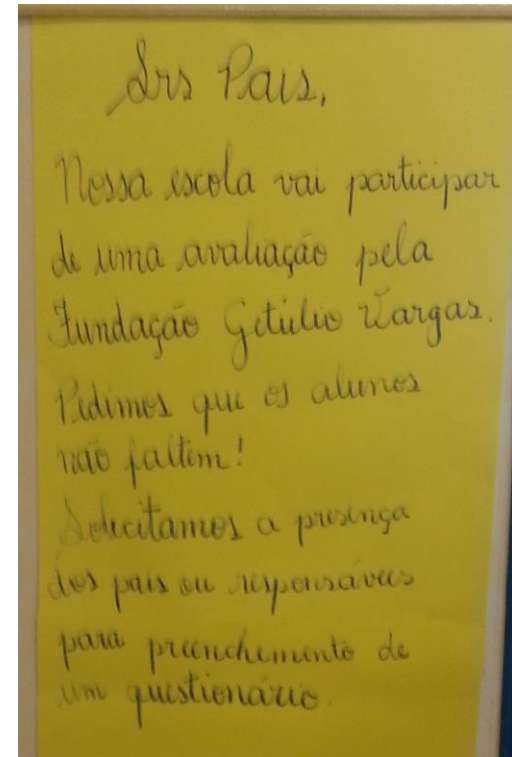 Srs Pais,
Nossa escola vai participar
de uma avaliação pela
Fundação Getúlio Vargas.
Pedimos que os alunos
não faltem!
Solicitamos a presença
dos pais ou responsáveis
para preenchimento de
um questionário.